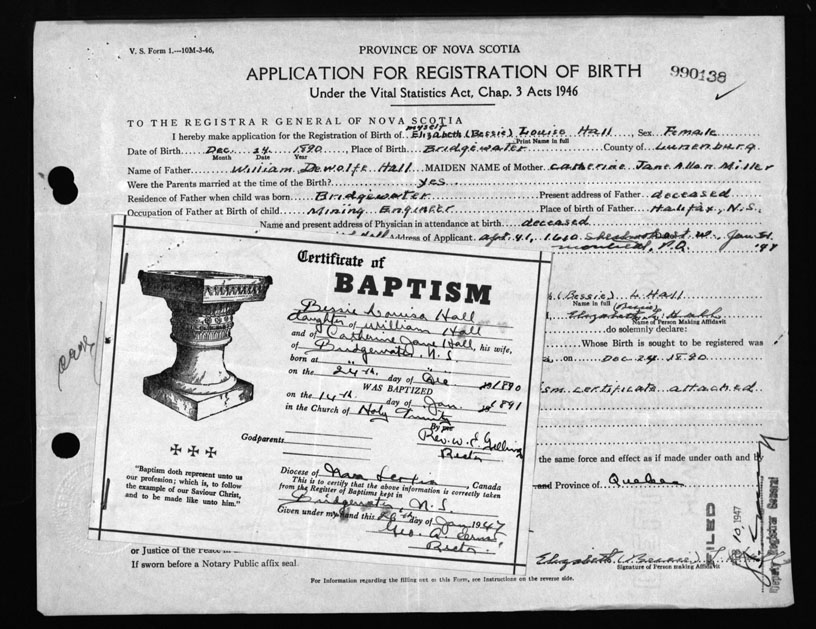 V. S. Form 1.—10M-3-46.
PROVINCE OF NOVA SCOTIA
APPLICATION FOR REGISTRATION OF BIRTH
990138
Under the Vital Statistics Act, Chap. 3 Acts 1946
TO THE REGISTRAR GENERAL OF NOVA SCOTIA
myself
I hereby make application for the Registration of Birth of Elizabeth (Bessie) Louise Hall, Sex Female
Print Name in full
Date of Birth Dec. 24 1890 Place of Birth Bridgewater County of Lunenburg
Month Date Year
Name of Father William Dewolfe Hall MAIDEN NAME of Mother Catherine Jane Allan Miller
Were the Parents married at the time of the Birth? yes
Residence of Father when child was born Bridgewater Present address of Father deceased
Occupation of Father at Birth of child Mining Engineer Place of Birth of Father Halifax, N.S.
Name and present address of Physician in attendance at birth deceased
Address of Applicant apt. 41, 1610 W., Jan 31
Montreal, P.Q. '47
(Bessie) L Hall
Name in full
(Bessie)
Elizabeth L Hall
Name of Person Making Affidavit
do solemnly declare:
Whose Birth is sought to be registered was
on Dec 24 1890
ism certificate attached
the same force and effect as if made under oath and by
and Province of Quebec
or Justice of the Peace in
If sworn before a Notary Public affix seal
Elizabeth (Bessie) L
Signature of Person making Affidavit
For Information regarding the filling out of this Form, see Instructions on the reverse side.
FILED
10 1947
Deputy Registrar General
Certificate of
BAPTISM
Bessie Louisa Hall
daughter of William Hall
and of Catherine Jane Hall, his wife,
of Bridgewater N.S
born at "
on the 24th day of Dec 1890
WAS BAPTIZED
on the 14th day of Jan. 1891
in the Church of Holy Trinity
By
Rev. W. E. Gelling
Rector
Godparents
Diocese of Nova Scotia, Canada
This is to certify that the above information is correctly taken
from the Register of Baptisms kept in
Bridgewater, N.S.
Given under my hand this day of Jan 1947
Geo. A.
Rector
"Baptism doth represent unto us
our profession; which is, to follow
the example of our Saviour Christ,
and to be made like unto him."